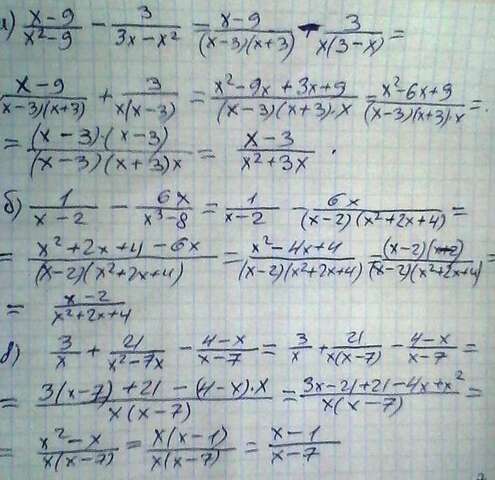 а) (x-9)/(x²-9) - 3/(3x-x²) = (x-9)/((x-3)(x+3)) - 3/(x(3-x)) =
(x-9)/((x-3)(x+3)) + 3/(x(x-3)) = (x²-9x+3x+9)/((x-3)(x+3)·x) = (x²-6x+9)/((x-3)(x+3)·x) =
= ((x-3)·(x-3))/((x-3)(x+3)x) = (x-3)/(x²+3x).
б) 1/(x-2) - 6x/(x³-8) = 1/(x-2) - 6x/((x-2)(x²+2x+4)) =
= (x²+2x+4-6x)/((x-2)(x²+2x+4)) = (x²-4x+4)/((x-2)(x²+2x+4)) = ((x-2)(x-2))/((x-2)(x²+2x+4)) =
= (x-2)/(x²+2x+4)
в) 3/x + 21/(x²-7x) - (4-x)/(x-7) = 3/x + 21/(x(x-7)) - (4-x)/(x-7) =
= (3(x-7)+21-(4-x)·x)/(x(x-7)) = (3x-21+21-4x+x²)/(x(x-7)) =
= (x²-x)/(x(x-7)) = (x(x-1))/(x(x-7)) = (x-1)/(x-7)